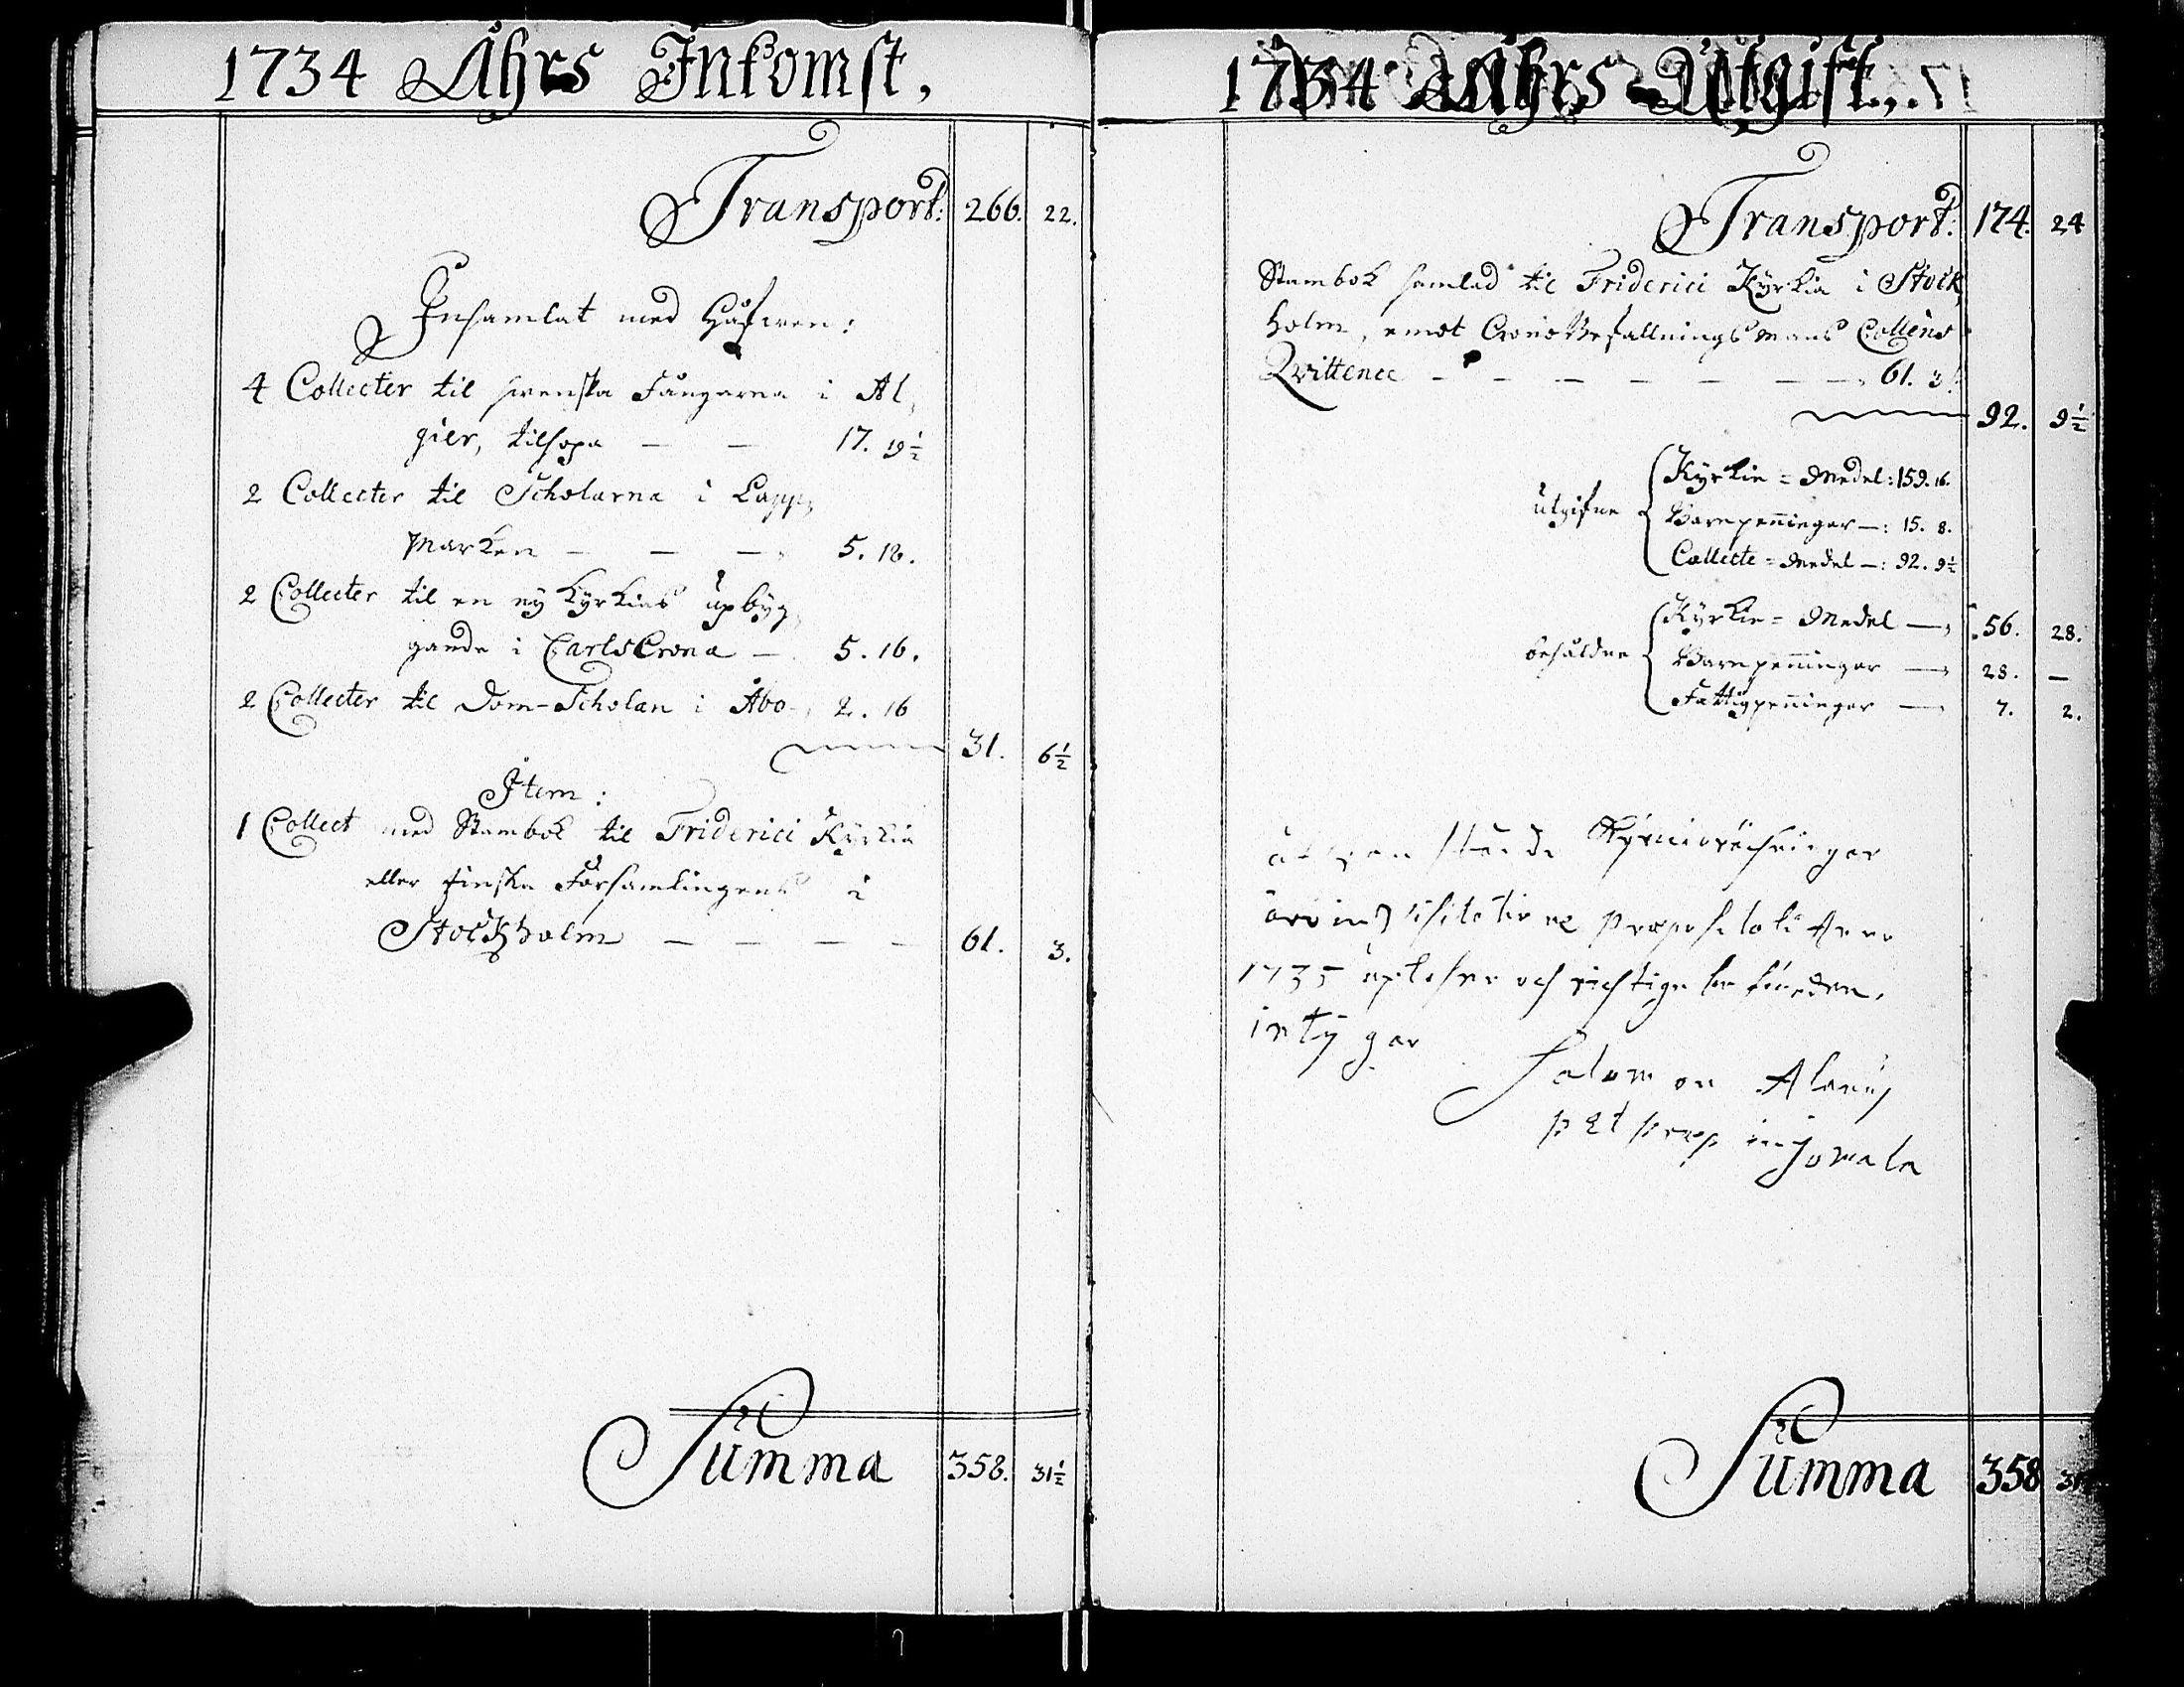 1734 Åhrs Inkomst,
Transport: 266. 22.
Insamlat med Håfwen:
4 Collecter til swenska Fångarna i Al,
gier, tilhopa — — 17. 19½
2 Collecter til Scholarna i Lapp,
Marken — — — 5. 18.
2 Collecter til en ny Kyrkias upbyg,
gande i CarlsCrona — 5. 16.
2 Collecter til Dom-Scholan i Åbo -, 2. 16
31. 6½
Item:
1 Collect med Stambok til Friderici Kyrkia
eller finska Församlingens i
Stockholm — — — — 61. 3.
Summa 358. 31½
1734 Åhrs Utgift,
Transport: 174. 24
Stambok samlad til Friderici Kyrkia i Stock,
holm, emot CronoBefallningsMans Colléns
Qvittence — — — — — — 61. 3.
92. 9½
utgifne
Kyrkie=Medel: 159. 16.
Barnpenningar —: 15. 8.
Collecte=Medel —: 92. 9½
behåldne
Kyrkie=Medel — 56. 28.
Barnpenningar — 28. —
Fattigpenningar — 7. 2.
stående Kyrkioräkningar
äro in Visitatione Præpositali Anno
1735 uplesne och richtige befundne,
intygar
Salomon
p et præp in Jomala
Summa 358 31